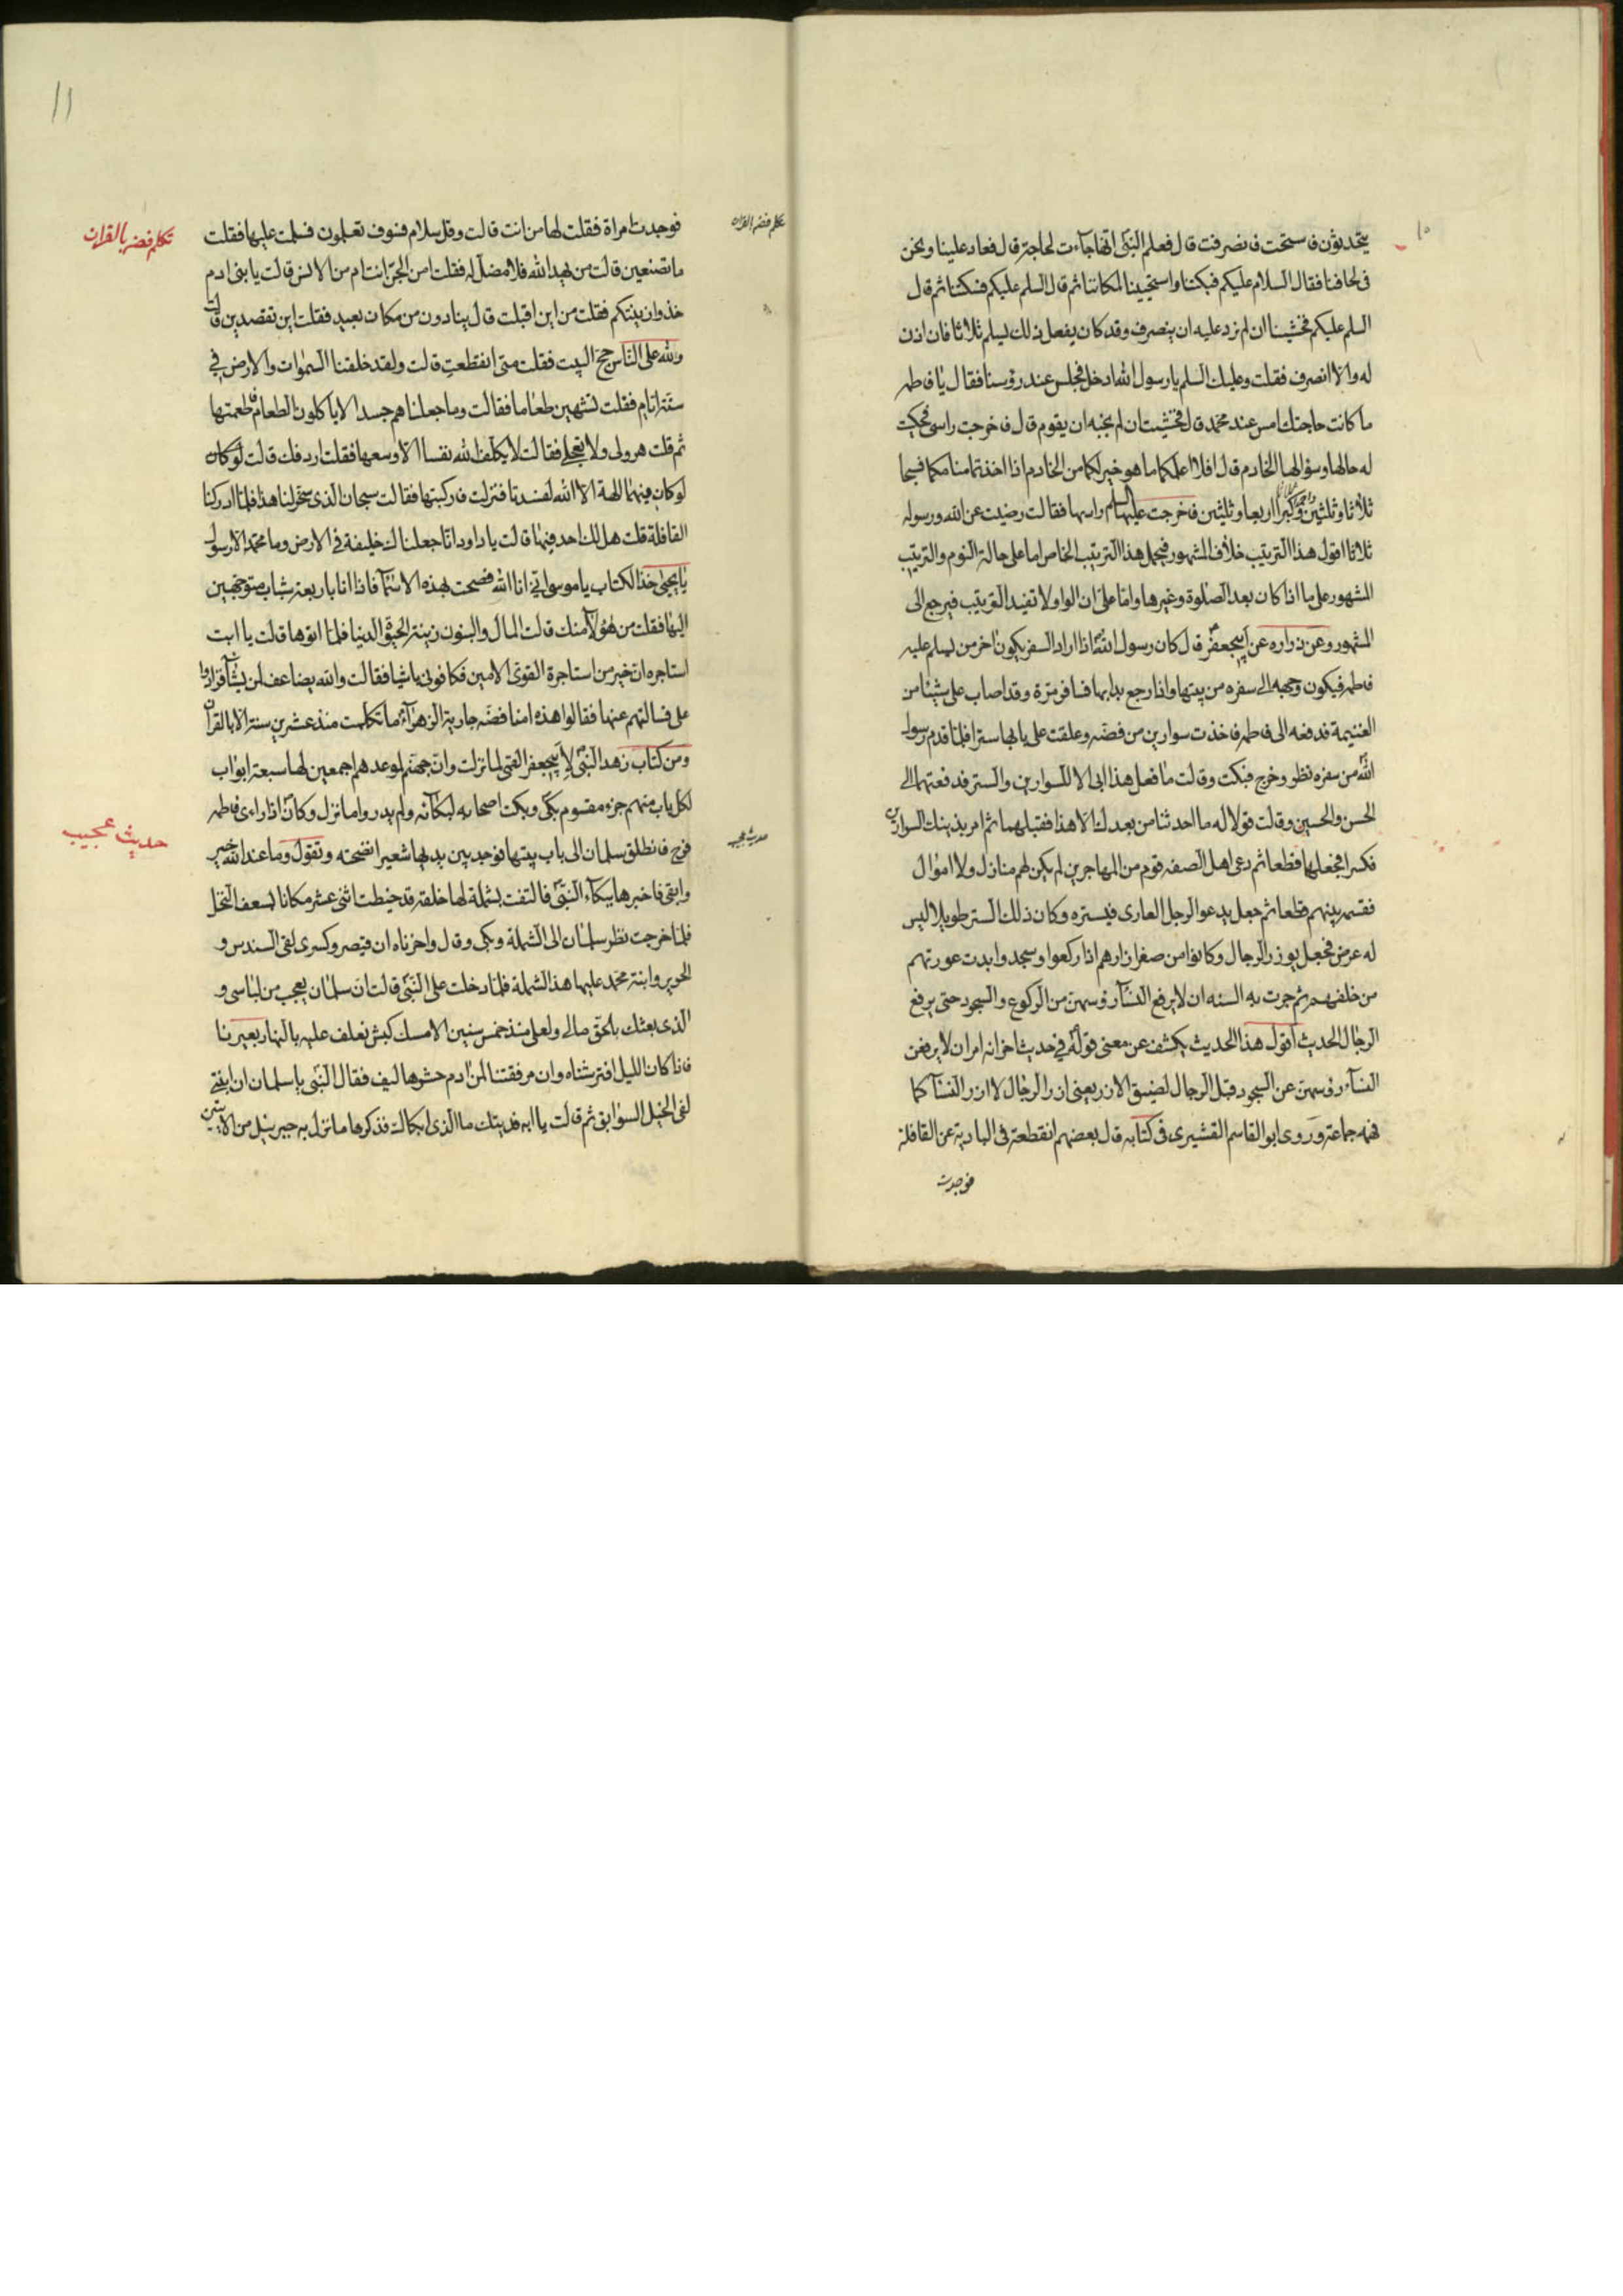 ١٠
يتحدثون فاستحت فانصرفت قال فعلم النبىّ انّها جاءت لحاجة قال فعاد علينا ونحن
فى لحافنا فقال السلام عليكم فسكتنا واستحيينا لمكاننا ثم قال السلم عليكم فسكتنا ثم قال
السلم عليكم فخشينا ان لم نرد عليه ان ينصرف وقد كان يفعل ذلك ليسلم ثلاثا فان اذن
له والا انصرف فقلت وعليك السلم يا رسول الله ادخل فجلس عند رؤسنا فقال يا فاطمه
ما كانت حاجتك امس عند محمد قال فخشيت ان لم نجبه ان يقوم قال فاخرجت راسى فحكيت
له حالها وسؤالها الخادم قال افلا اعلمكما ما هو خير لكما من الخادم اذا اخذتما منامكما فسبحا
ثلاثا وثلثين وكبرا اربعا وثلثين فاخرجت عليها السلم راسها فقالت رضيت عن الله ورسوله
ثلاثا اقول هذا الترتيب خلاف المشهور فيحمل هذا الترتيب الخاص اما على حالة النوم والترتيب
المشهور على ما اذا كان بعد الصلوة وغيرها واما على ان الواو لا تفيد الترتيب فيرجع الى
المشهور وعن زراره عن ابيجعفر قال كان رسول الله اذا اراد السفر يكون اخر من يسلم عليه
فاطمه فيكون وجهه الى سفره من بيتها واذا رجع بدا بها فسافر مرة وقد اصاب على شيئا من
الغنيمة فدفعه الى فاطمه فاخذت سوارين من فضه وعلقت على بابها سترا فلما قدم رسول
الله من سفره نظر وخرج فبكت وقالت ما فعل هذا ابى الا للسوارين والستر فدفعتهما الى
الحسن والحسين وقالت قولا له ما احدثنا من بعدك الا هذا فقبلهما ثم امر بذينك السوارين
فكسرا فجعلها قطعا ثم دعى اهل الصفه قوم من المهاجرين لم يكن لهم منازل ولا اموال
فقسمه بينهم قطعا ثم جعل يدعو الرجل العارى فيستره وكان ذلك الستر طويلا ليس
له عرض فجعل يوزر الرجال وكانوا من صغر ازارهم اذا ركعوا وسجدوا بدت عورتهم
من خلفهم ثم جرت به السنه ان لا يرفع النسآء رؤسهن من الركوع والسجود حتى يرفع
الرجال الحديث اقول هذا الحديث يكشف عن معنى قوله فى حديث اخر انه امر ان لا يرفعن
النسآء رؤسهن عن السجود قبل الرجال لضيق الازر يعنى ازر الرجال لا ازر النسآء كما
فهمه جماعة وروى ابو القاسم القشيرى فى كتابه قال بعضهم انقطعة فى البادية عن القافلة
فوجدت
١١
تكلم فضه بالقران
تكلم فضه بالقران
فوجدت امراة فقلت لها من انت قالت وقل سلام فسوف تعلمون فسلمت عليها فقلت
ما تصنعين قالت من يهد الله فلا مضل له فقلت امن الجن انت ام من الانس قالت يا بنى ادم
خذوا زينتكم فقلت من اين اقبلت قال ينادون من مكان بعيد فقلت اين تقصدين قالت
ولله على الناس حج البيت فقلت متى انقطعت قالت ولقد خلقنا السموات والارض فى
ستة ايام فقلت تشتهين طعاما فقالت وما جعلناهم جسدا لا ياكلون الطعام فاطعمتها
ثم قلت هرولى ولا تعجلى فقالت لا يكلف الله نفسا الا وسعها فقلت اردفك قالت لو كان
لو كان فيهما الهة الا الله لفسدتا فنزلت فاركبتها فقالت سبحان الذى سخر لنا هذا فلما ادركنا
القافلة قلت هل لك احد فيها قالت يا داود انا جعلناك خليفة فى الارض وما محمد الا رسول
يا يحيى خذ الكتاب يا موسى انى انا الله فصحت بهذه الاسمآء فاذا انا باربعة شباب متوجهين
اليها فقلت من هؤلآء منك قالت المال والبنون زينة الحيوة الدنيا فلما اتوها قالت يا ابت
استاجره ان خير من استاجرت القوى الامين فكافونى باشيا فقالت والله يضاعف لمن يشآء فزادوا
على فسالتهم عنها فقالوا هذه امنا فضه جارية الزهرآء ما تكلمت منذ عشرين سنة الا بالقرآن
ومن كتاب زهد النبى لابيجعفر القمى لما نزلت وان جهنم لموعدهم اجمعين لها سبعة ابواب
لكل باب منهم جزء مقسوم بكى وبكت اصحابه لبكآئه ولم يدروا ما نزل وكان اذا راءى فاطمه
حديث عجيب
حديث عجيب
فرح فانطلق سلمان الى باب بيتها فوجد بين يديها شعيرا تطحنه وتقول وما عند الله خير
وابقى فاخبرها ببكآء النبى فالتفت بشملة لها خلقة قد خيطت اثنى عشر مكانا بسعف النخل
فلما خرجت نظر سلمان الى الشملة وبكى وقال واحزناه ان قيصر وكسرى لفى السندس و
الحرير وابنة محمد عليها هذا الشملة فلما دخلت على النبى قالت ان سلمان يعجب من لباسى و
الذى بعثك بالحق مالى ولعلى منذ خمس سنين الا مسك كبش نعلف عليه بالنهار بعيرنا
فاذا كان الليل افترشناه وان مرفقتنا لمن ادم حشوها ليف فقال النبى يا سلمان ان ابنتى
لفى الخيل السوابق ثم قالت يا ابه فديتك ما الذى ابكاك فذكر لها ما نزل به جبرئيل من الآيتين